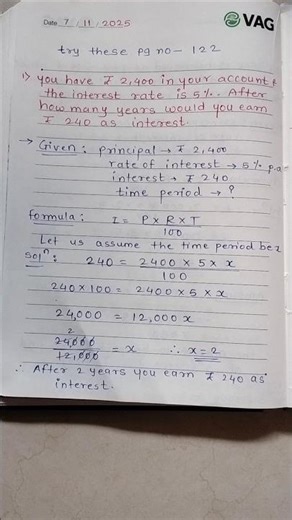 Date 7 / 11 / 2025
VAG
try these pg no - 122
1) you have ₹ 2,400 in your account &
the interest rate is 5%. After
how many years would you earn
₹ 240 as interest.
→ Given: principal → ₹ 2,400
rate of interest → 5% p.a
interest → ₹ 240
time period → ?
formula: I = P × R × T
100
Let us assume the time period be
solⁿ: 240 = 2400 × 5 × x
100
240 × 100 = 2400 × 5 × x
24,000 = 12,000 x
2
24,000 = x ∴ x = 2
12,000
∴ After 2 years you earn ₹ 240 as
interest.